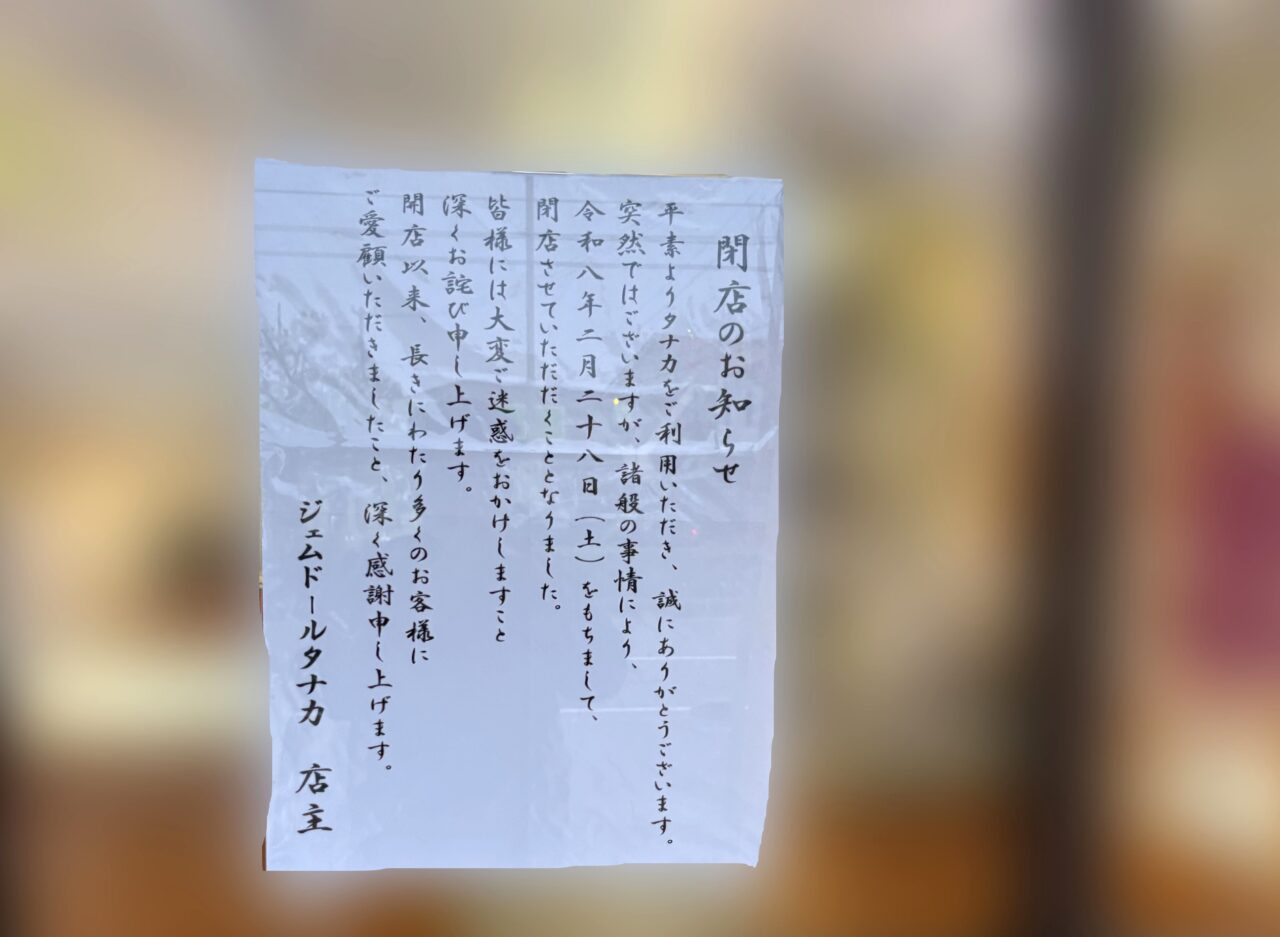 閉店のお知らせ
平素よりタナカをご利用いただき、誠にありがとうございます。
突然ではございますが、諸般の事情により、
令和八年二月二十八日（土）をもちまして、
閉店させていただだくこととなりました。
皆様には大変ご迷惑をおかけしますこと
深くお詫び申し上げます。
開店以来、長きにわたり多くのお客様に
ご愛顧いただきましたこと、深く感謝申し上げます。
ジェムドールタナカ　店主